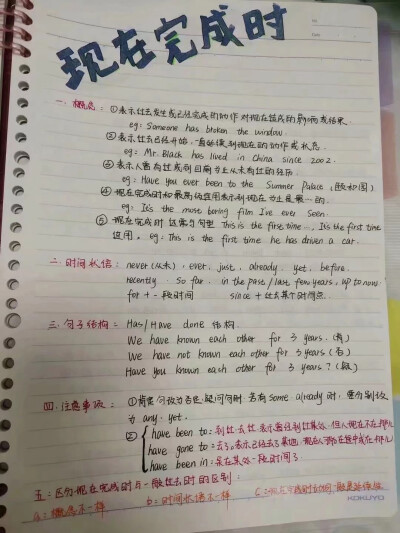 现在完成时
一. 概念: ①表示过去发生或已经完成的动作对现在造成的影响或结果.
eg: Someone has broken the window.
②表示过去已经开始, 一直延续到现在的动作或状态.
eg: Mr. Black has lived in China since 2002.
③表示人曾有过或到目前为止从未有过的经历
eg: Have you ever been to the Summer Palace (颐和园)
④现在完成时和最高级连用表示到现在为止是最…的.
eg: It's the most boring film I've ever seen.
⑤ 现在完成时 This is the first time …, It's the first time
连用. eg: This is the first time he has driven a car.
二. 时间状语: never (从未), ever, just, already, yet, before,
recently, so far, in the past / last few years, up to now
for + 一段时间 since + 过去某个时间点.
三. 句子结构 = Has / Have done 结构.
We have known each other for 3 years. (肯)
We have not known each other for 3 years (否)
Have you known each other for 3 years? (疑)
四. 注意事项: ①肯定句改为否定/疑问句时 若有 some already 时, 要分别改
为 any. yet.
② have been to: 到过去过, 表示曾经到过某处, 但人现在不在那儿
have gone to: 去了, 表示已经去了某地, 现在人可能在途中或在那儿
have been in: 呆在某处一段时间了.
五: 区分现在完成时与一般过去时的区别:
a: 概念不一样 b: 时间状语不一样
KOKUYO